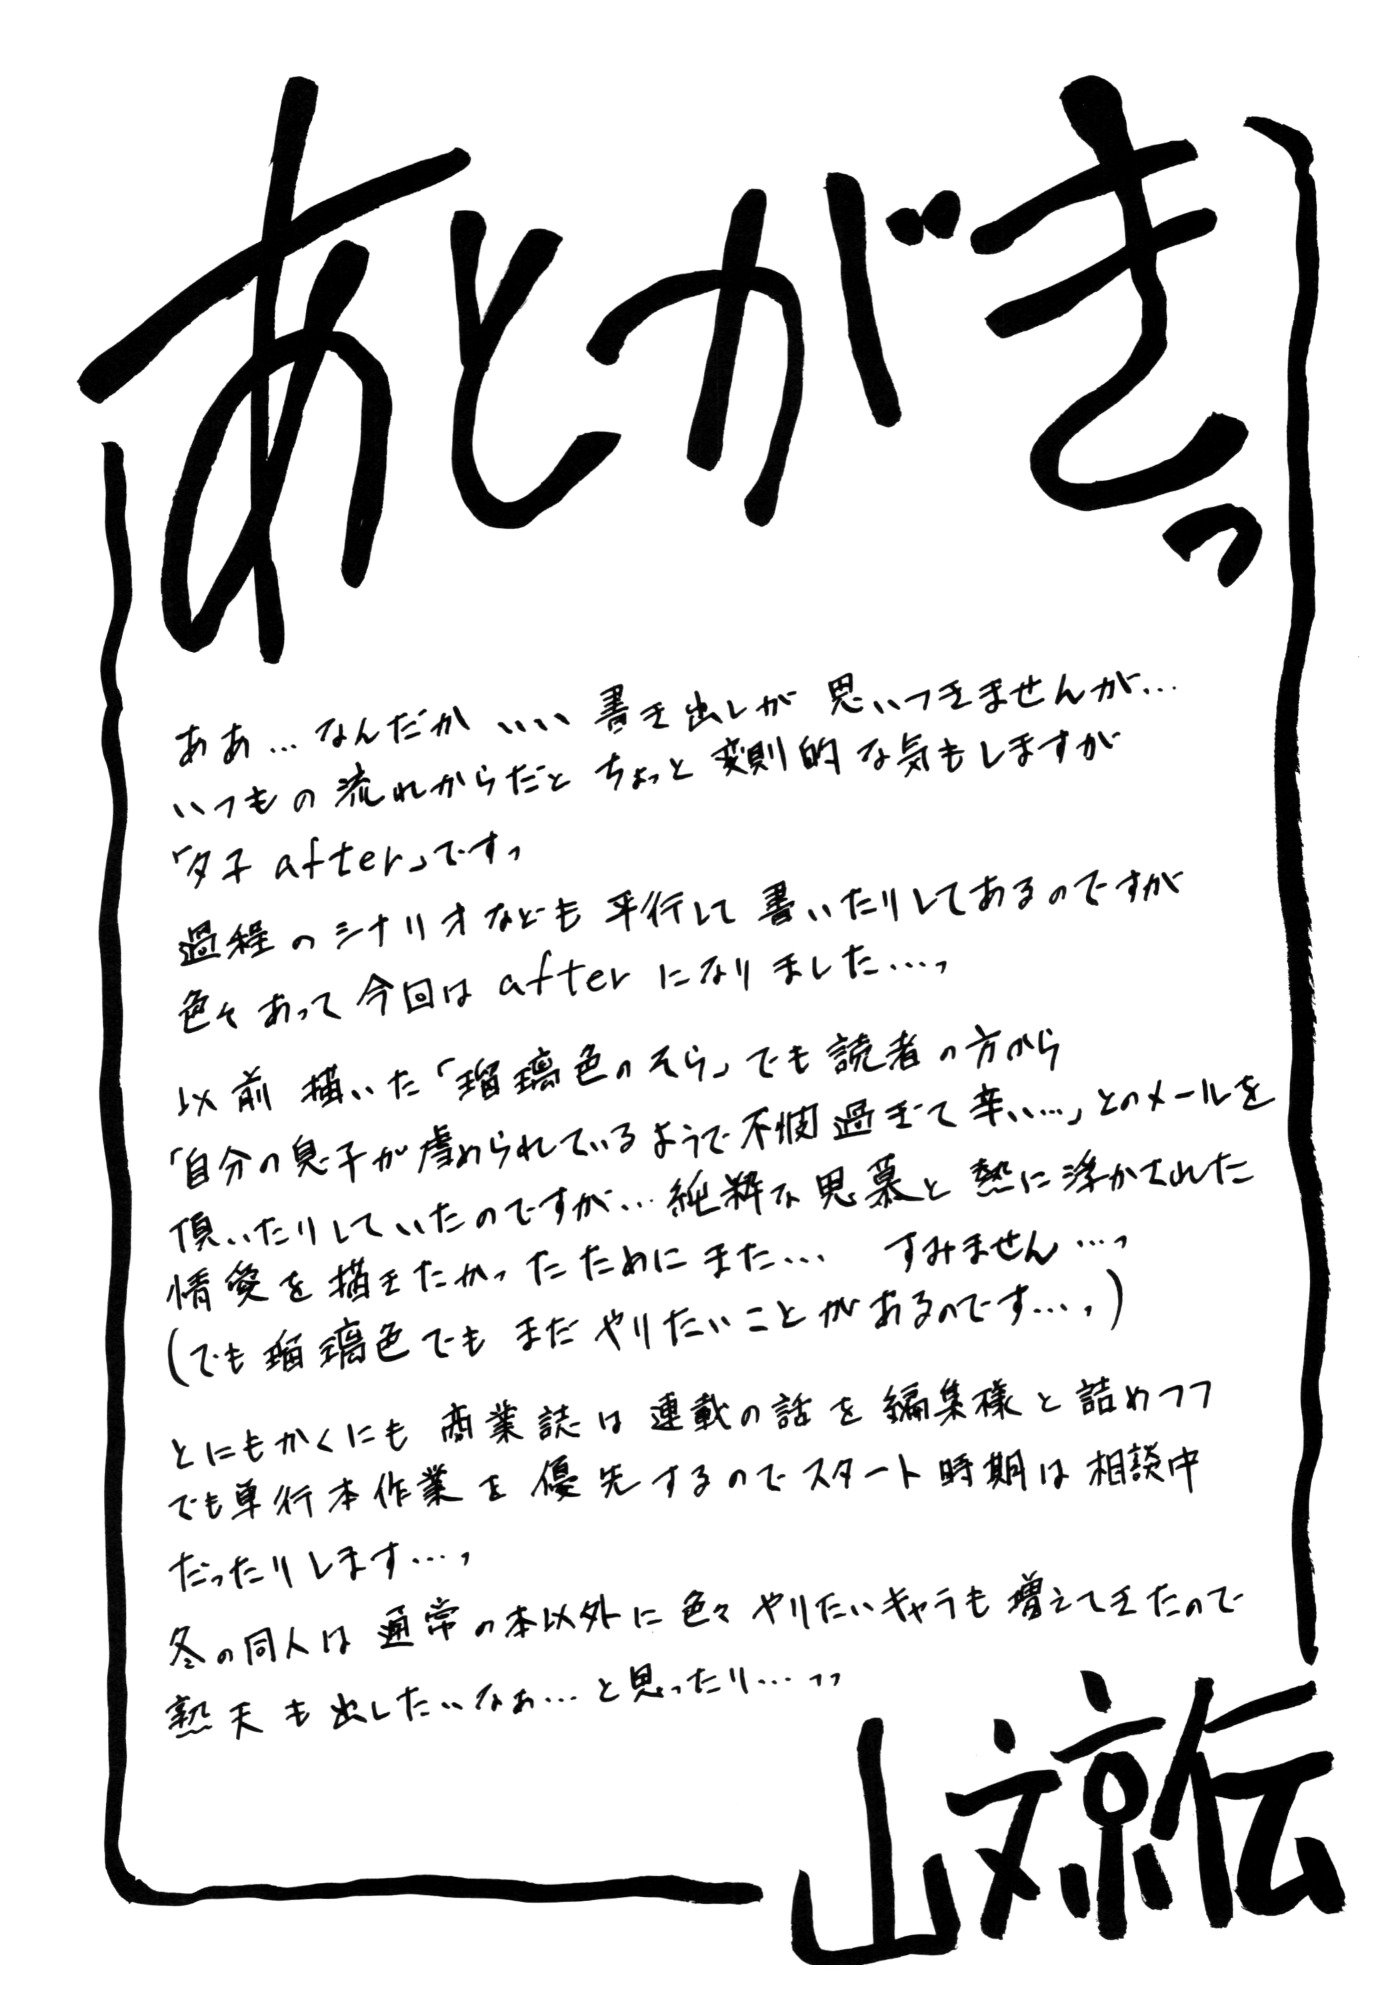 あとがきっ
ああ…なんだかいい書き出しが思いつきませんが…
いつもの流れからだとちょっと変則的な気もしますが
「夕子after」ですっ
過程のシナリオなども平行して書いたりしてあるのですが
色々あって今回はafterになりました…っ
以前描いた「瑠璃色のそら」でも読者の方から
「自分の息子が虐められているようで不憫過ぎて辛い…」とのメールを
頂いたりしていたのですが…純粋な思慕と熱に浮かされた
情愛を描きたかったためにまた… すみません…っ
(でも瑠璃色でもまだやりたいことがあるのです…っ)
とにもかくにも商業誌は連載の話を編集様と詰めつつ
でも単行本作業を優先するのでスタート時期は相談中
だったりします…っ
冬の同人は通常の本以外に色々やりたいキャラも増えてきたので
熟天も出したいなぁ…と思ったり…っっ
山文京伝